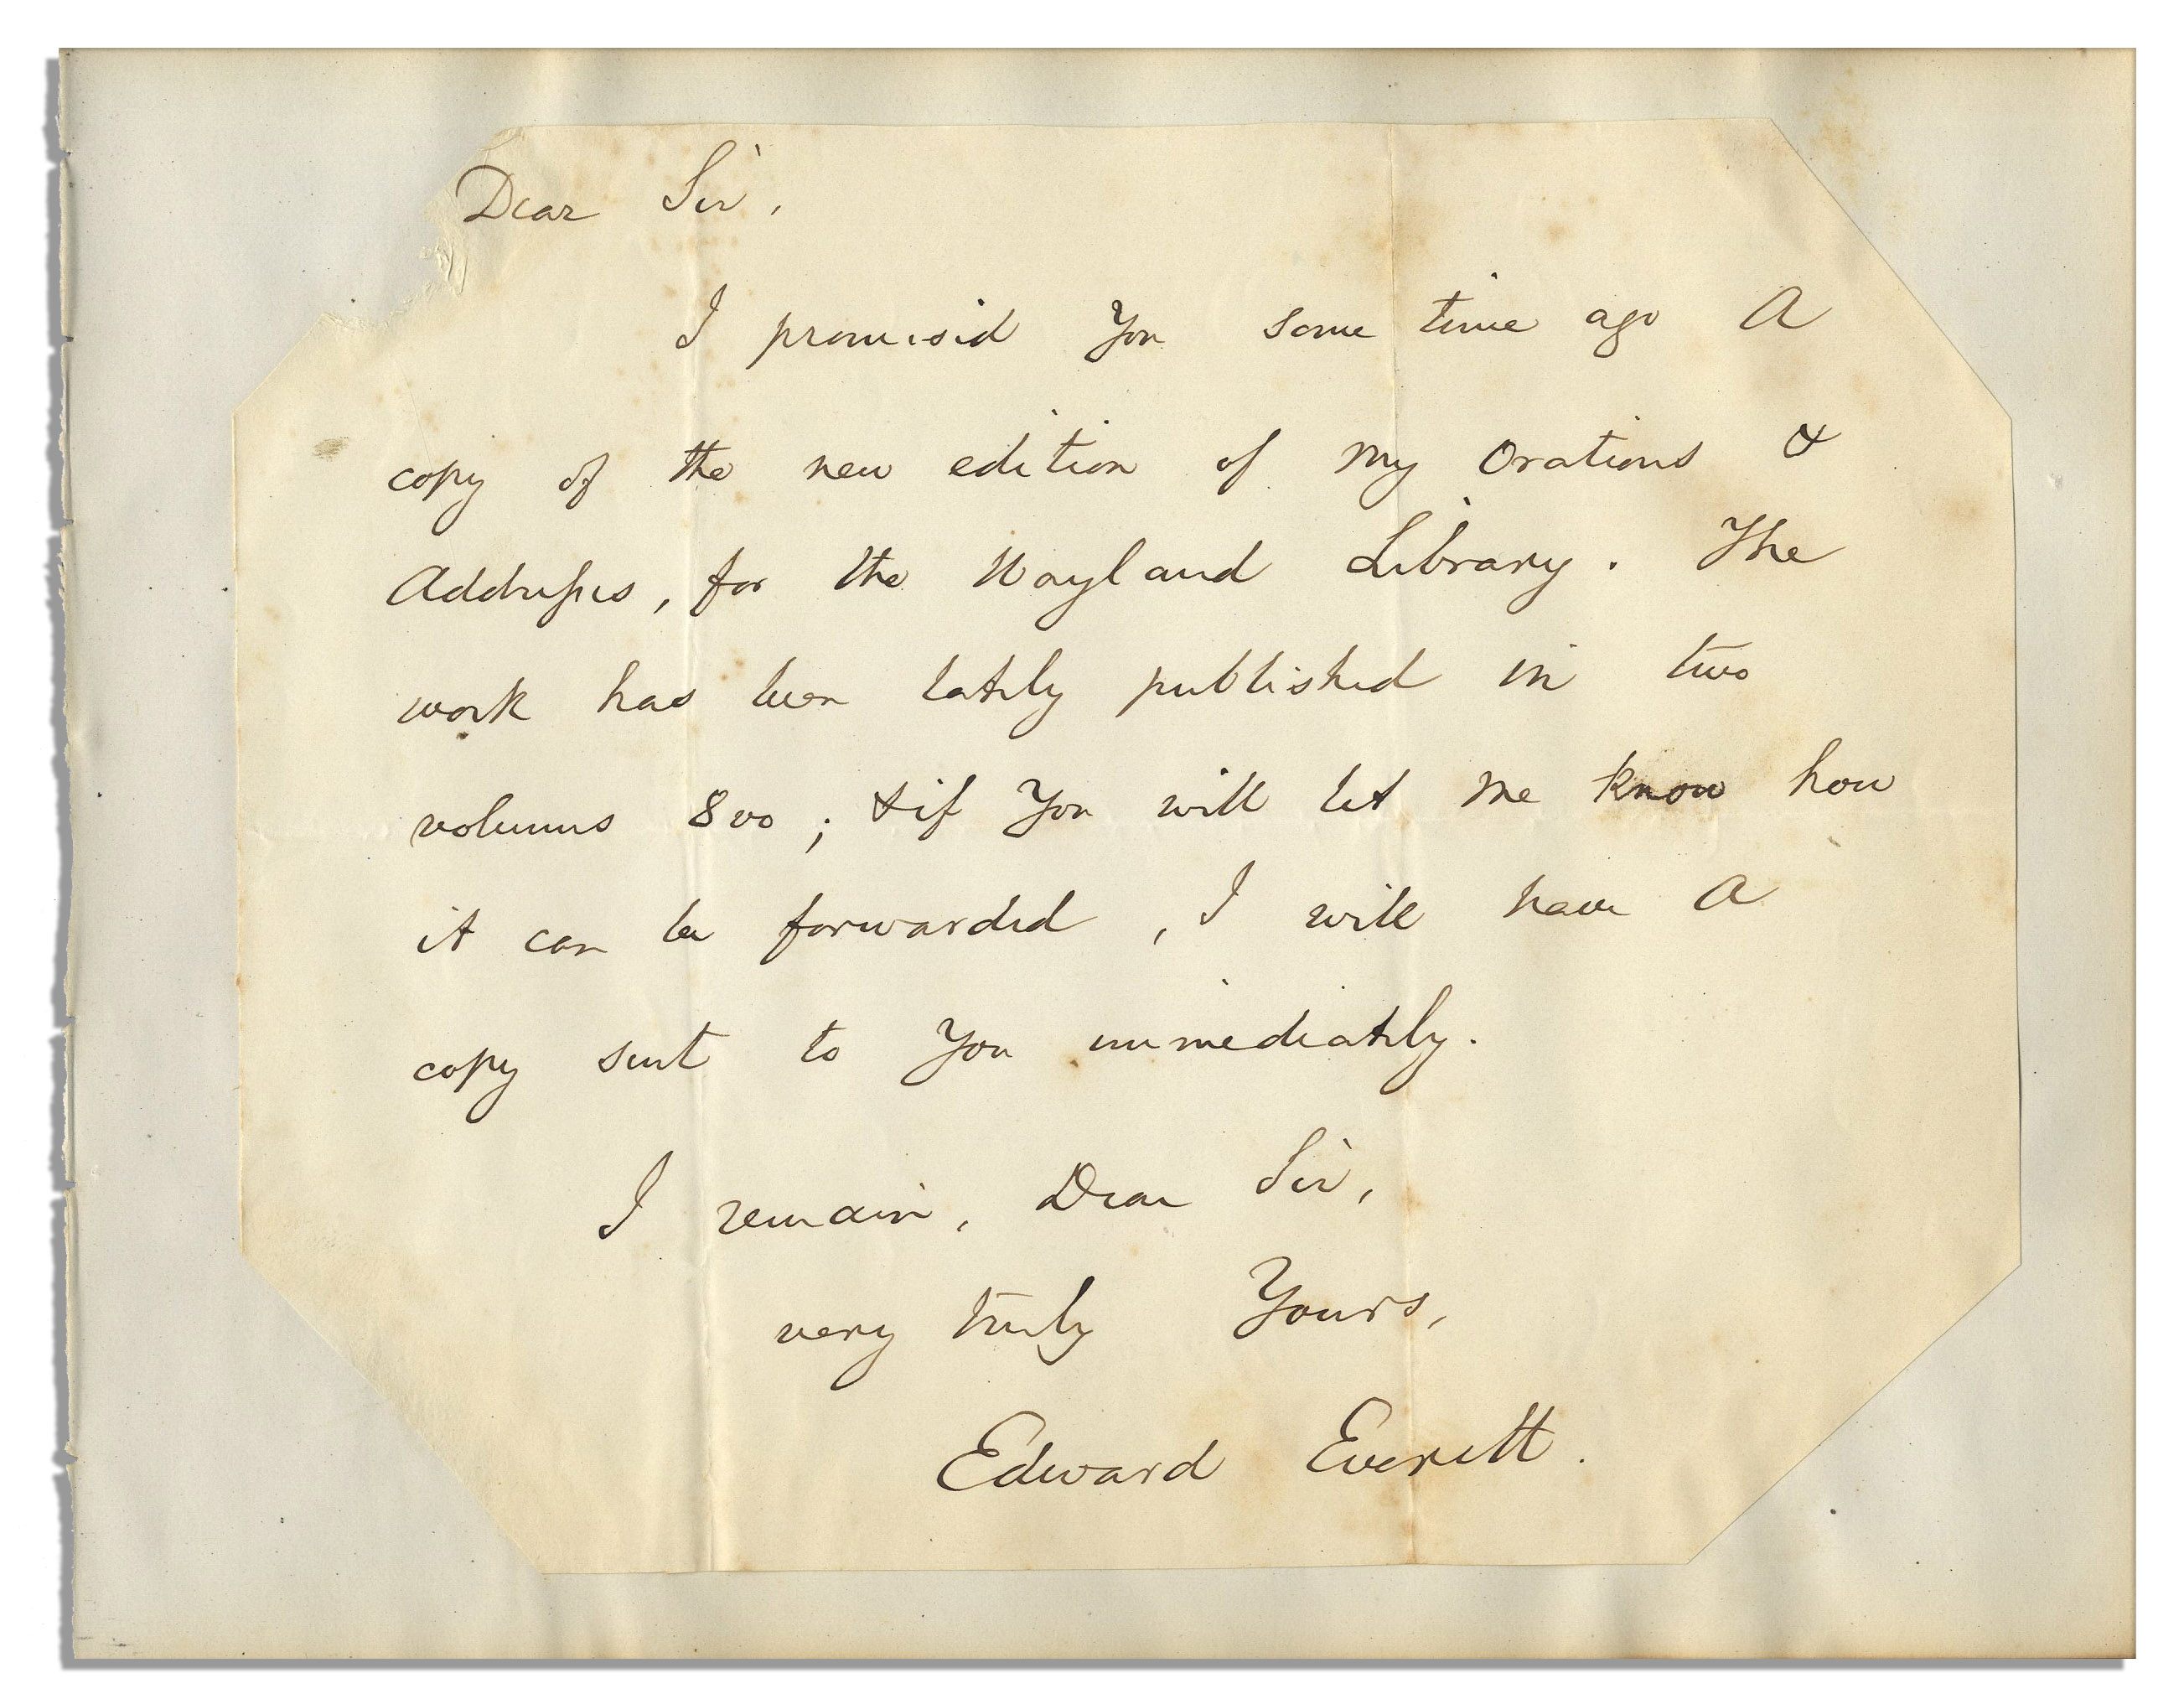 Dear Sir,
I promised you some time ago a
copy of the new edition of my Orations &
Addresses, for the Wayland Library. The
work has been lately published in two
volumes 8vo; & if you will let me know how
it can be forwarded, I will have a
copy sent to you immediately.
I remain, Dear Sir,
very truly Yours,
Edward Everett.